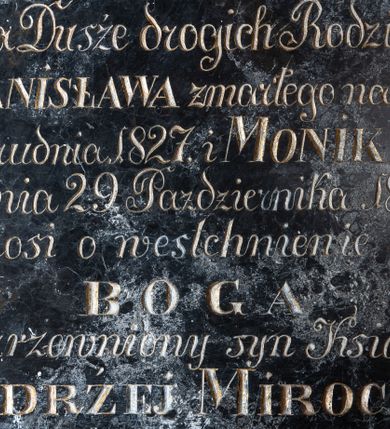 a Dusże drogich Rodzi
ANISŁAWA zmarłego na
rudnia 1827. i MONIK
nia 29 Pazdziernika 18
osi o westchmienie
BOGA
rzewniony syn Księ
DRŻEJ MIROC